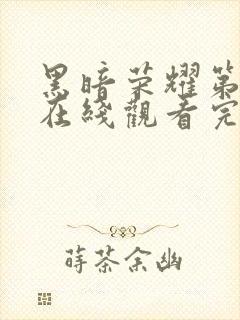 黑暗荣耀第
在线觀看完
蒔茶余幽